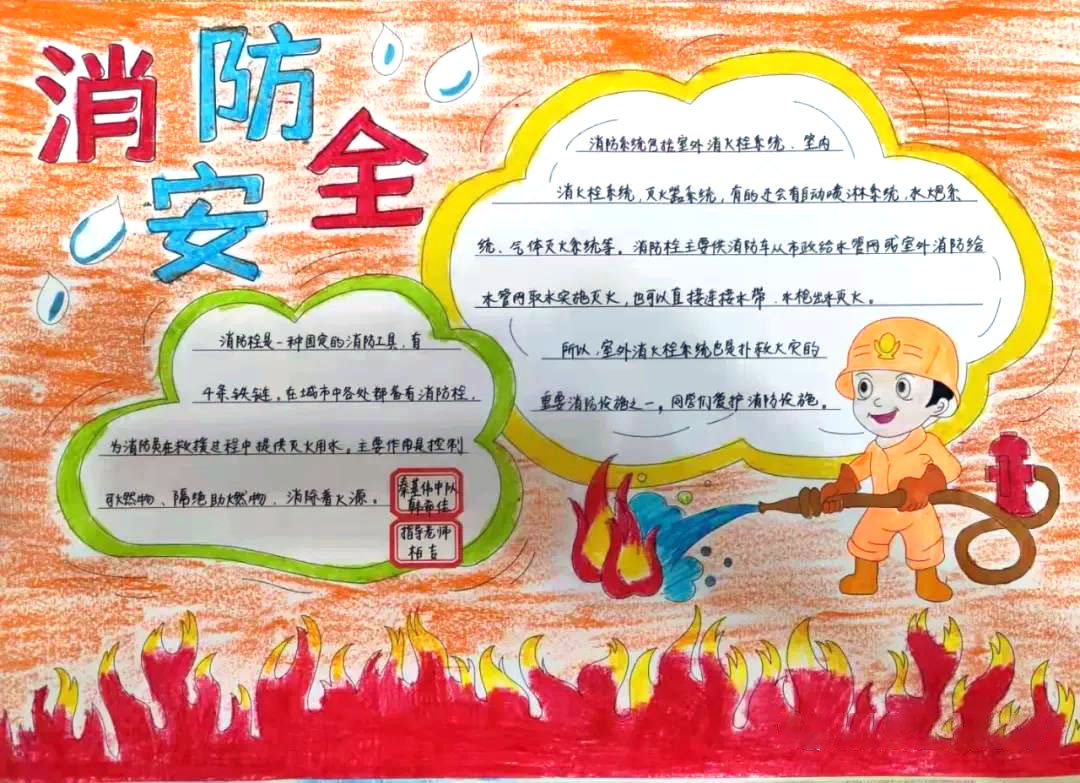 消防
安全
消防系统包括室外消火栓系统、室内
消火栓系统，灭火器系统，有的还会有自动喷淋系统，水炮系
统、气体灭火系统等。消防栓主要供消防车从市政给水管网或室外消防给
水管网取水实施灭火，也可以直接连接水带、水枪出水灭火。
所以，室外消火栓系统也是扑救火灾的
重要消防设施之一。同学们爱护消防设施。
消防栓是一种固定的消防工具，有
4条铁链，在城市中各处都备有消防栓，
为消防员在救援过程中提供灭火用水。主要作用是控制
可燃物、隔绝助燃物、消除着火源。
秦基伟中队
韩佳
指导老师
柏吉